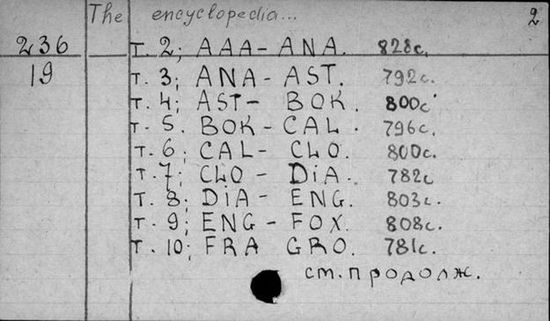 The encyclopedia... 2
236 T. 2; AAA-ANA. 828c.
19 T. 3; ANA-AST. 792c.
T. 4; AST- BOK. 800c
T. 5. BOK-CAL. 796c.
T. 6; CAL- CLO. 800c.
T. 7; CLO - DiA. 782c
T. 8; DIA- ENG. 803c.
T. 9; ENG-FOX. 808c.
T. 10; FRA GRO. 781c.
см. продолж.